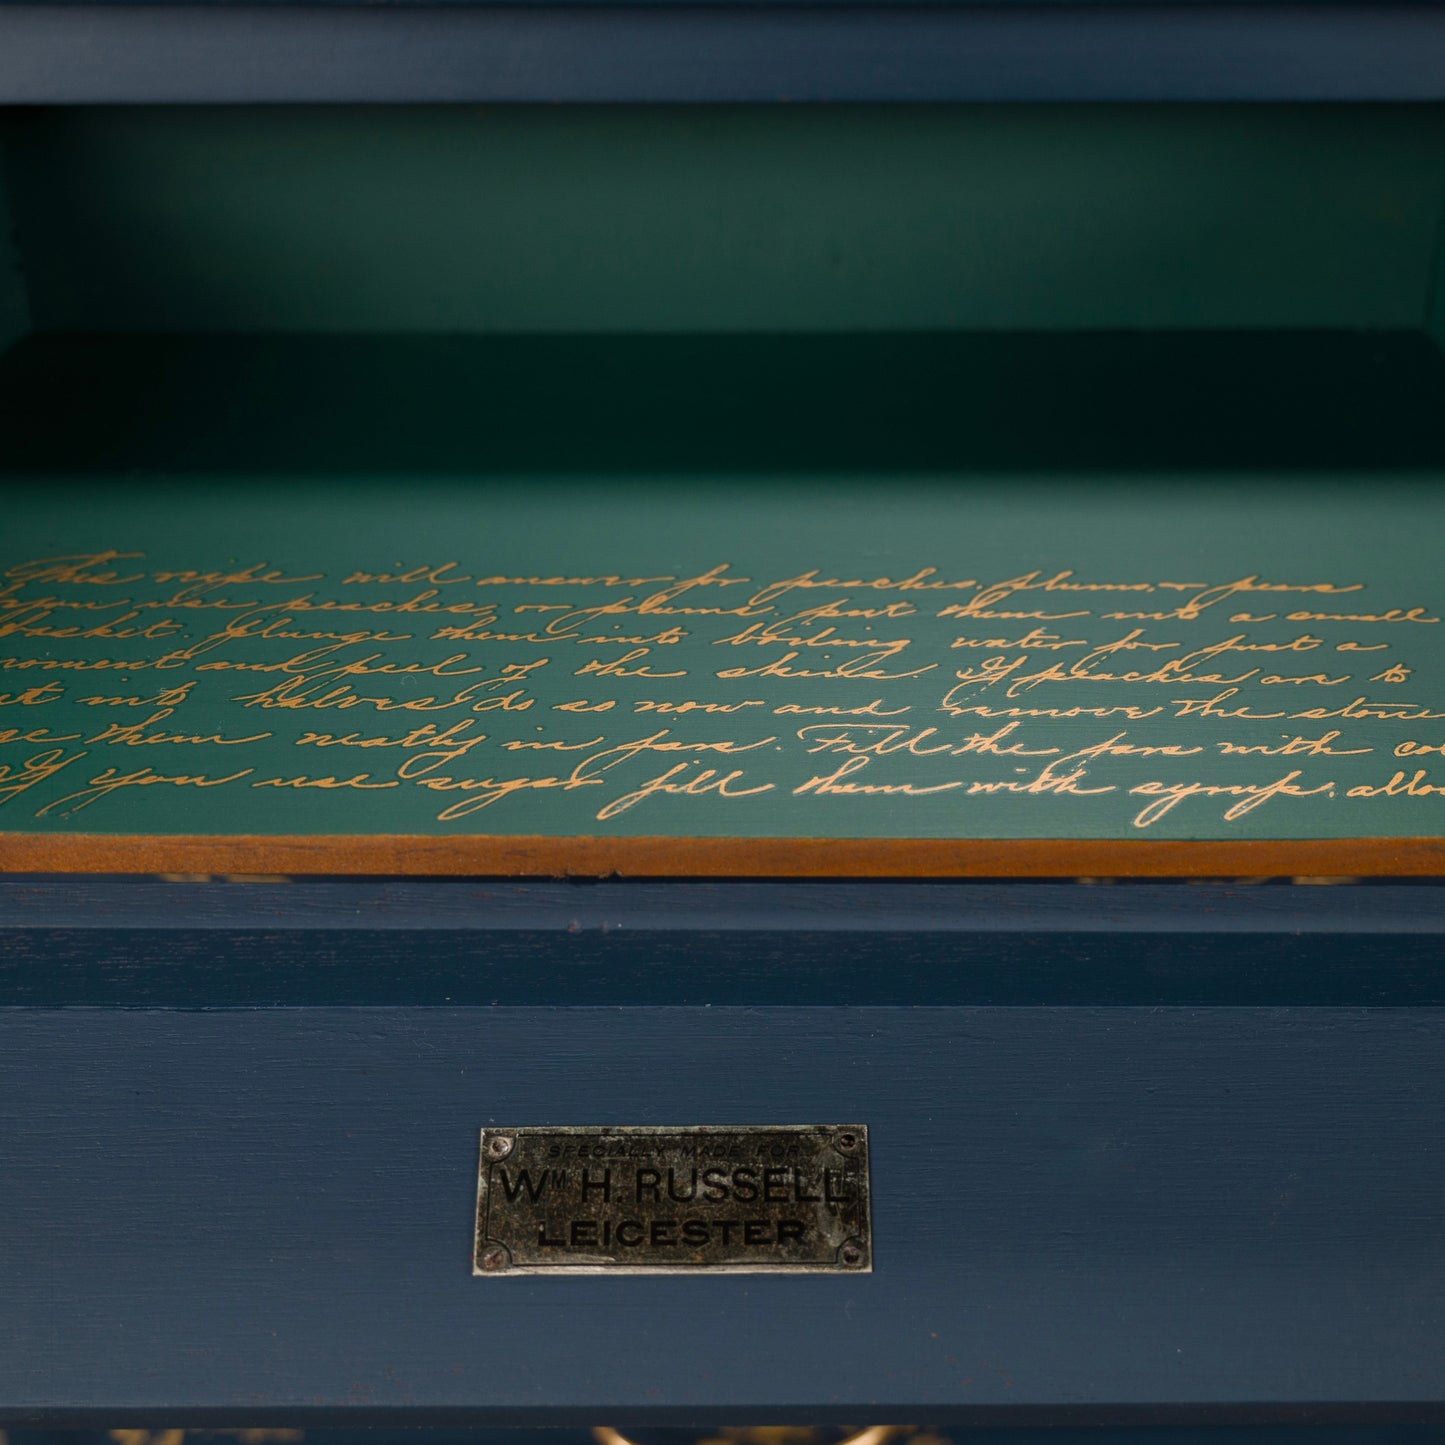 This recipe will answer for peaches, plums, or pears
you use peaches, or plums, put them into a small
basket. Plunge them into boiling water for just a
moment and peel of the skins. If peaches are to
into halves do so now and remove the stone
them neatly in jars. Fill the jars with
If you use sugar fill them with syrup.
SPECIALLY MADE FOR
WM H. RUSSELL
LEICESTER